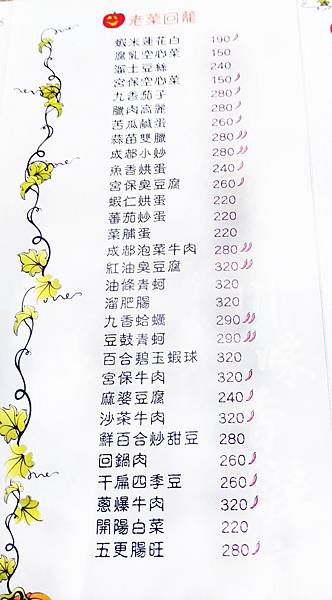 老菜回龍
蝦米蓮花白 190
腐乳空心菜 150
溜土豆絲 240
宮保空心菜 150
九香茄子 280
臘肉高麗 280
苦瓜鹹蛋 260
蒜苗雙臘 280
成都小炒 280
魚香烘蛋 240
宮保臭豆腐 260
蝦仁烘蛋 220
蕃茄炒蛋 220
菜脯蛋 220
成都泡菜牛肉 280
紅油臭豆腐 320
油條青蚵 320
溜肥腸 320
九香蛤蠣 290
豆鼓青蚵 290
百合碧玉蝦球 320
宮保牛肉 320
麻婆豆腐 240
沙茶牛肉 320
鮮百合炒甜豆 280
回鍋肉 260
干扁四季豆 260
蔥爆牛肉 320
開陽白菜 220
五更腸旺 280